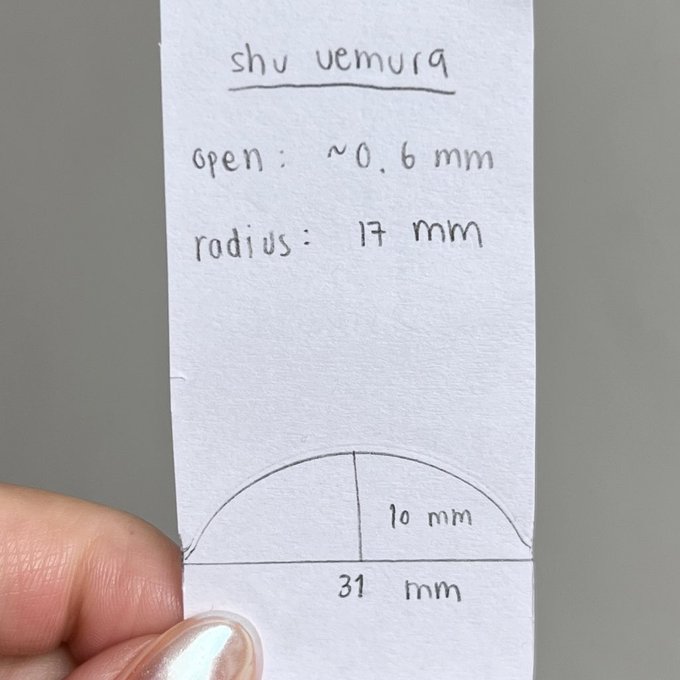 shu uemura
open: ~0.6 mm
radius: 17 mm
10 mm
31 mm